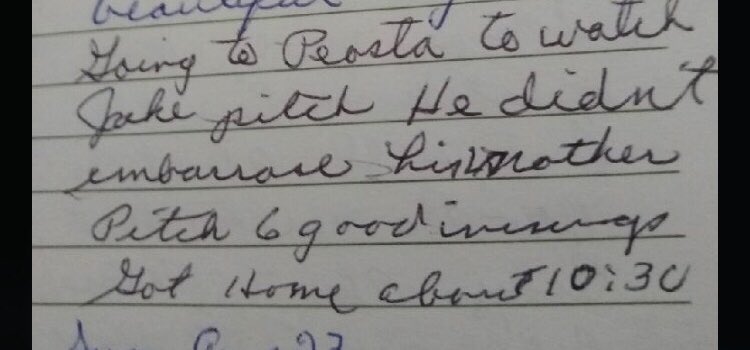 beautiful
Going to Peosta to watch
Jake pitch He didn't
embarrase his mother
Pitch 6 good innings
Got Home about 10:30